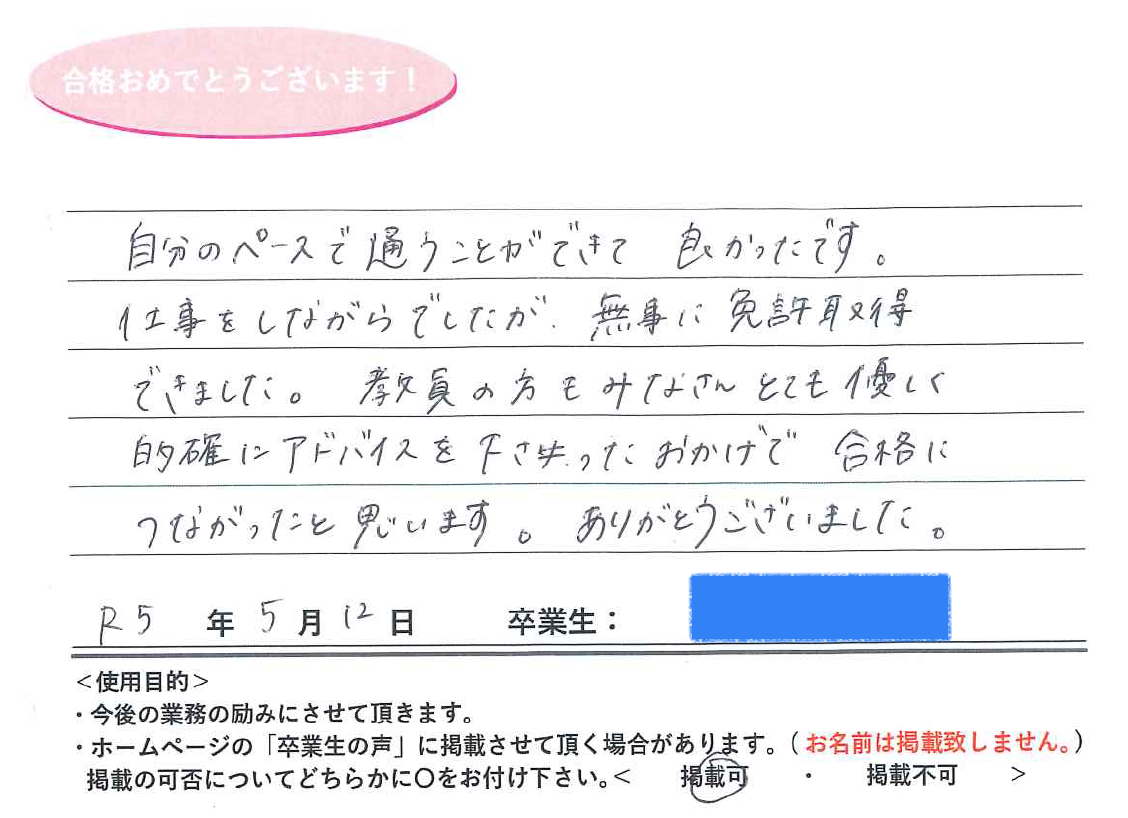 合格おめでとうございます！
自分のペースで通うことができて 良かったです。
仕事をしながらでしたが、無事に免許取得
できました。 教員の方もみなさんとても優しく
的確にアドバイスを下さったおかげで 合格に
つながったと思います。 ありがとうございました。
R5 年 5 月 12 日 卒業生：
＜使用目的＞
・今後の業務の励みにさせて頂きます。
・ホームページの「卒業生の声」に掲載させて頂く場合があります。（お名前は掲載致しません。）
掲載の可否についてどちらかに〇をお付け下さい。＜ 掲載可 ・ 掲載不可 ＞